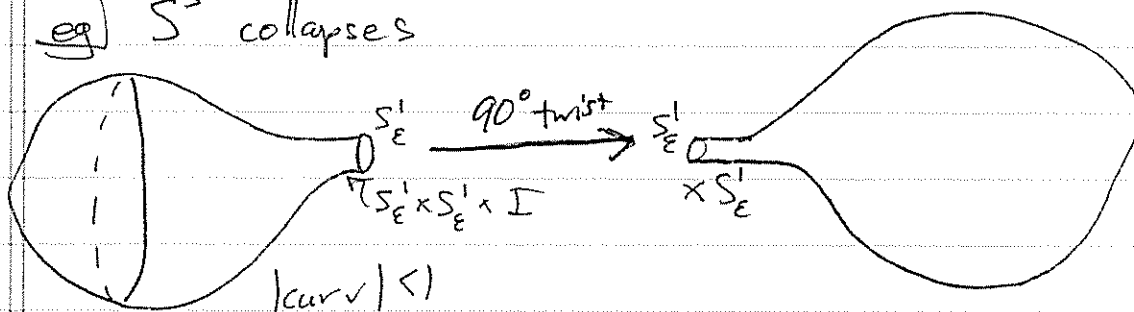 eg) S³ collapses
S¹_ε 90° twist S¹_ε
S¹_ε × S¹_ε × I × S¹_ε
|curv| < 1